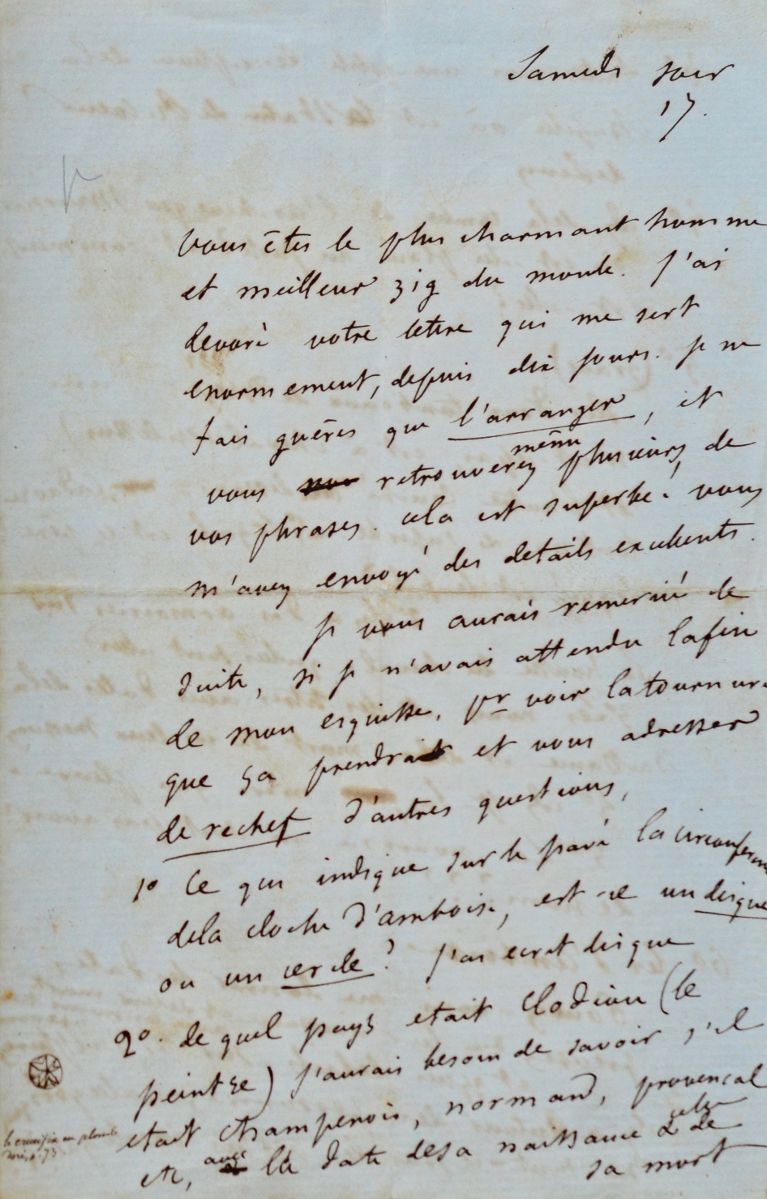 Samedi soir
17.
vous êtes le plus charmant homme
et meilleur zig du monde. J'ai
devoré votre lettre qui me sert
enormement, depuis dix jours. je ne
fais guères que l'arranger, et
vous retrouverez même plusieurs de
vos phrases. cela est superbe! vous
m'avez envoyé des details excellents.
je vous aurais remercié de
suite, si je n'avais attendu la fin
de mon esquisse, pr voir la tournure
que ça prendrait et vous adresser
de rechef d'autres questions,
1o Ce qui indique sur le pavé la circonference
de la cloche d'amboise, est-ce un disque
ou un cercle? J'ai ecrit disque
2o. de quel pays etait Clodion (le
peintre) J'aurais besoin de savoir s'il
etait champenois, normand, provencal
etc, avec la date de sa naissance & celle de
sa mort
le crucifix en plomb